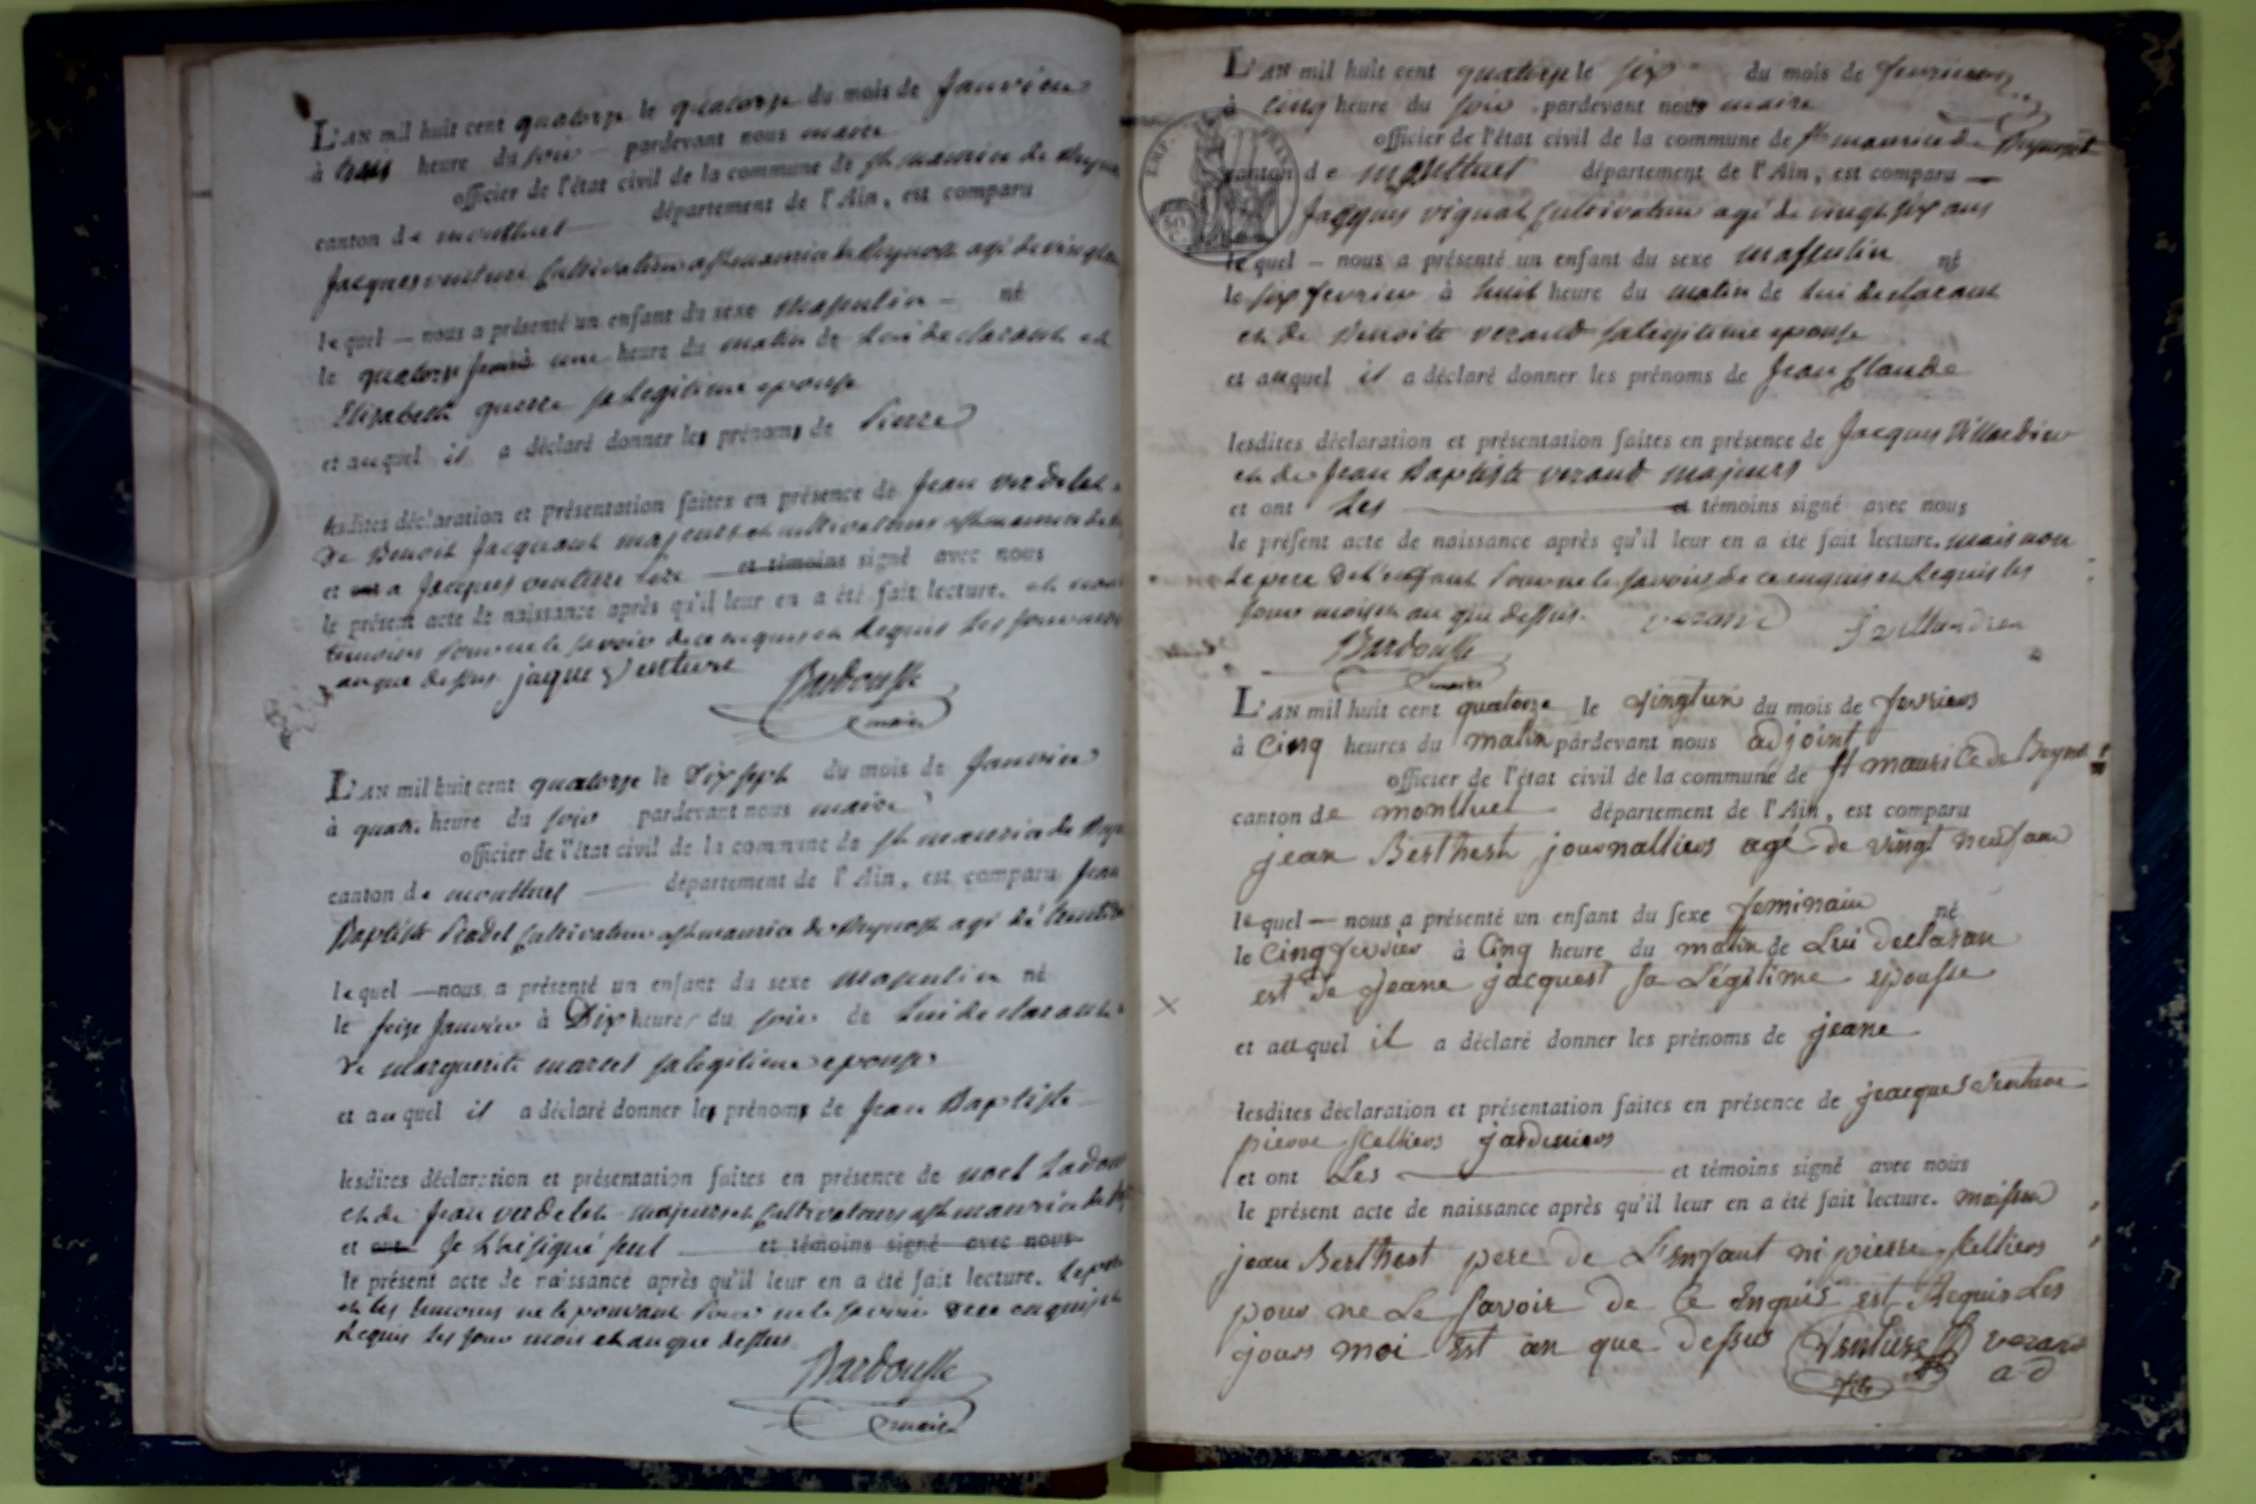 L'AN mil huit cent quatorze le quatorze du mois de Janvier
à heure du soir pardevant nous maire
officier de l'état civil de la commune de St maurice de
canton de montluel département de l'Ain, est comparu
Jacques venture Cultivateur a St maurice de Beynost agé de
le quel — nous a présenté un enfant du sexe Masculin né
le quatorze à une heure du matin de Lui declarant et
Elizabeth guerre sa Legitime epouse
et au quel il a déclaré donner les prénoms de Pierre
lesdites déclaration et présentation faites en présence de Jean verdelet
de Benoit Jacquand majeurs et cultivateurs a St maurice de
et ont a Jacques venture pere et témoins signé avec nous
le présent acte de naissance après qu'il leur en a été fait lecture. et non
temoins pour ne le savoir de ce enquis et Requis Les jour mois
an que dessus. jaque venture
Bardousse
maire
L'AN mil huit cent quatorze le Dix sept du mois de Janvier
à quatre heure du soir pardevant nous maire
officier de l'état civil de la commune de St maurice de
canton de montluel département de l'Ain, est comparu Jean
Baptiste Pradel Cultivateur a St maurice de Beynost agé de
le quel — nous a présenté un enfant du sexe Masculin né
le seize Janvier à Dix heures du soir de Lui declarant
de marguerite marcel sa legitime epouse
et au quel il a déclaré donner les prénoms de Jean Baptiste
lesdites déclaration et présentation faites en présence de noel
et de Jean verdelet majeurs et Cultivateurs a St maurice de
et ont Je L'ai signé seul et témoins signé avec nous
le présent acte de naissance après qu'il leur en a été fait lecture. Le pere
et les temoins ne le pouvant pour ne le savoir de ce enquis et
Requis Les jour mois et an que dessus
Bardousse
maire
L'AN mil huit cent quatorze le six du mois de fevrier
à cinq heure du soir pardevant nous maire
officier de l'état civil de la commune de St maurice de Beynost
canton de montluel département de l'Ain, est comparu
Jacques vignat Cultivateur agé de vingt six ans
le quel — nous a présenté un enfant du sexe masculin né
le six fevrier à huit heure du matin de Lui declarant
et de Benoite verand sa legitime epouse
et au quel il a déclaré donner les prénoms de Jean Claude
lesdites déclaration et présentation faites en présence de Jacques Villardier
et de Jean Baptiste verand majeurs
et ont Les et témoins signé avec nous
le présent acte de naissance après qu'il leur en a été fait lecture. mais non
Le pere de L'enfant Pour ne le savoir de ce enquis et Requis les
jour mois et an que dessus. verand
Bardousse
maire
L'AN mil huit cent quatorze le vingt un du mois de fevrier
à Cinq heures du matin pardevant nous adjoint
officier de l'état civil de la commune de St maurice de Beynost
canton de montluel département de l'Ain, est comparu
jean Berthest journallier agé de vingt neuf ans
le quel — nous a présenté un enfant du sexe feminain né
le Cinq fevrier à Cinq heure du matin de Lui declaran
est de Jeane jacquest sa Legitime epousse
et au quel il a déclaré donner les prénoms de jeane
lesdites déclaration et présentation faites en présence de jeacques venture
pierre sCelliers jardiniers
et ont Les et témoins signé avec nous
le présent acte de naissance après qu'il leur en a été fait lecture.
jean Berthest pere de L'enfant ni pierre selliers
pour ne Le savoir de Ce Enquis est Requis Les
jours moi Est an que dessus Venture verand
fils ad